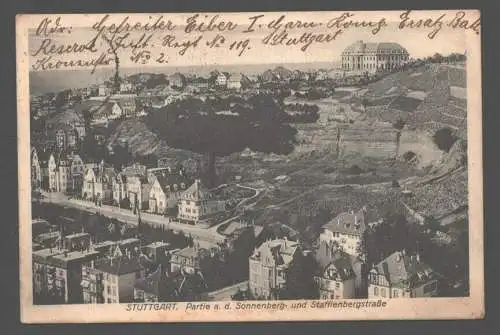 Adr: Gefreiter Eiber I Garn. Komp. Ersatz Bat.
Reserv Inft. Regt No 119, Stuttgart
No 2
STUTTGART. Partie a. d. Sonnenberg- und Stafflenbergstraße